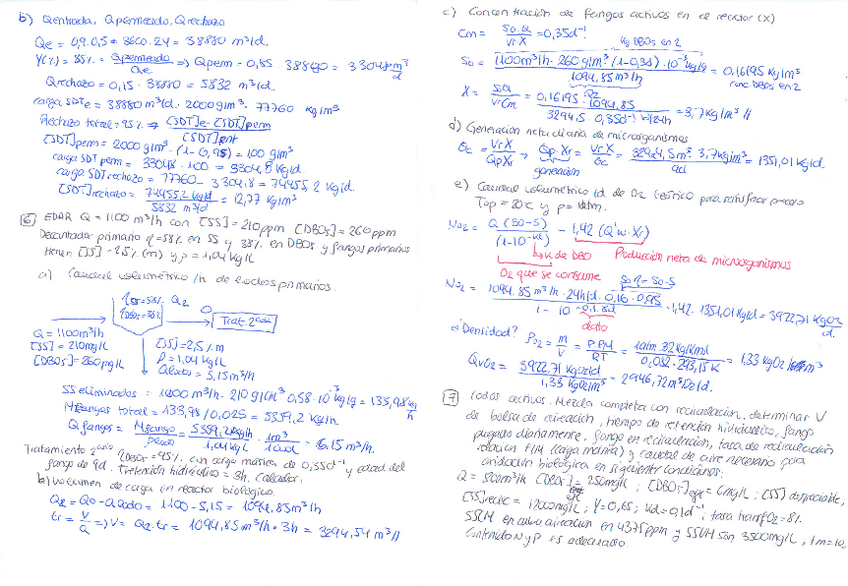 b) Qentrada, Qpermeado, Qrechazo
Qe = 0,9·0,5 · 3600·24 = 38880 m³/d.
Y(%) = 85% = Qpermeado/Qe => Qperm = 0,85 · 38880 = 33048 m³/d
Qrechazo = 0,15 · 38880 = 5832 m³/d.
carga SDTe = 38880 m³/d · 2000 g/m³ = 77760 kg/m³
Rechazo total = 95% => [SDT]e - [SDT]perm / [SDT]ent
[SDT]perm = 2000 g/m³ · (1 - 0,95) = 100 g/m³
carga SDT perm = 33048 · 100 = 3304,8 kg/d
carga SDT rechazo = 77760 - 3304,8 = 74455,2 kg/d
[SDT]rechazo = 74455,2 kg/d / 5832 m³/d = 12,77 kg/m³
6 EDAR Q = 1100 m³/h con [SS] = 210 ppm [DBO5] = 260 ppm
Decantador primario η = 58% en SS y 38% en DBO5 y fangos primarios
tienen [SS] = 2,5% (m) y ρ = 1,04 kg/L
a) Caudal volumétrico /h de lodos primarios.
ηSS = 58%
ηDBO5 = 38%
Q2
Trat. 2ario
Q = 1100 m³/h
[SS] = 210 mg/L
[DBO5] = 260 mg/L
[SS] = 2,5% m
ρ = 1,04 kg/L
Qlodos = 5,15 m³/h
SS eliminados = 1100 m³/h · 210 g/m³ · 0,58 · 10⁻³ kg/g = 133,98 kg/h
Mfangos total = 133,98 / 0,025 = 5359,2 kg/h
Qfangos = Mfango/ρlodo = 5359,2 kg/h / 1,04 kg/L · 1m³/1000L = 5,15 m³/h.
Tratamiento 2ario ηDBO5 = 95% con carga másica de 0,35 d⁻¹ y edad del
fango de 9d. Tretención hidráulico = 3h. Calcular.
b) Volumen de carga en reactor biológico.
Q2 = Q0 - Qlodo = 1100 - 5,15 = 1094,85 m³/h
tr = V/Q => V = Q2 · tr = 1094,85 m³/h · 3h = 3294,54 m³ //
c) Concentración de fangos activos en el reactor (X)
Cm = S0·Q / Vr X = 0,35 d⁻¹
kg DBO5 en 2
S0 = 1100 m³/h · 260 g/m³ · (1-0,38) · 10⁻³ kg/g / 1094,85 m³/h = 0,16195 kg/m³
DBO5 en 2
X = S0Q / Vr Cm = 0,16195 · 1094,85 / 3294,5 · 0,35 d⁻¹ · 1d/24h = 3,7 kg/m³ //
d) Generación neta diaria de microorganismos
θc = Vr X / Qp Xr => Qp·Xr = Vr X / θc = 3294,5 m³ · 3,7 kg/m³ / 9d = 1351,01 kg/d.
generación
e) Caudal volumétrico /d de O2 teórico para satisfacer proceso
Top = 20ºC y p = 1atm.
NO2 = Q (S0-S) / (1-10^-kt) - 1,42 (Qw·Xr)
k de DBO
Producción neta de microorganismos
O2 que se consume
S0·η = S0-S
NO2 = 1094,85 m³/h · 24h/d · 0,16 · 0,95 / 1 - 10^-0,1·5d - 1,42 · 1351,01 kg/d = 3922,71 kg O2/d.
dato
¿Densidad? ρO2 = m/V = P·PM/RT = 1atm · 32 kg/kmol / 0,082 · 293,15 K = 1,33 kg O2/m³
QvO2 = 3922,71 kg O2/d / 1,33 kg O2/m³ = 2946,72 m³ O2/d.
7 Lodos activos. Mezcla completa con recirculación, determinar V
de balsa de aireación, tiempo de retención hidráulico, fango
purgado diariamente, fango en recirculación, tasa de recirculación
relación F/M (carga másica) y caudal de aire necesario para
oxidación biológica en siguientes condiciones:
Q = 800 m³/h [DBO5] = 250 mg/L ; [DBO5]efte = 6 mg/L ; [SS] despreciable,
[SS]recirc = 12000 mg/L ; Y = 0,65 ; kd = 0,1 d⁻¹ ; tasa transf O2 = 8%
SSLM en cuba aireación en 4375 ppm y SSVLM son 3500 mg/L ; tm = 10.
Contenido N y P es adecuado.